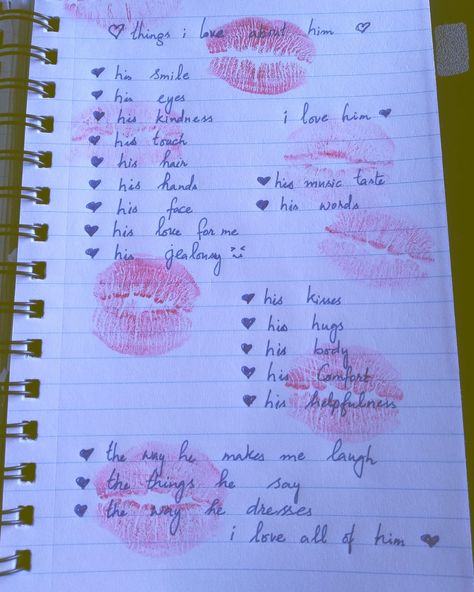 ♡ things i love about him ♡
♥ his smile
♥ his eyes
♥ his kindness
i love him ♥
♥ his touch
♥ his hair
♥ his hands
♥ his music taste
♥ his face
♥ his words
♥ his love for me
♥ his jealousy
♥ his kisses
♥ his hugs
♥ his body
♥ his comfort
♥ his helpfulness
♥ the way he makes me laugh
♥ the things he say
♥ the way he dresses
i love all of him ♥